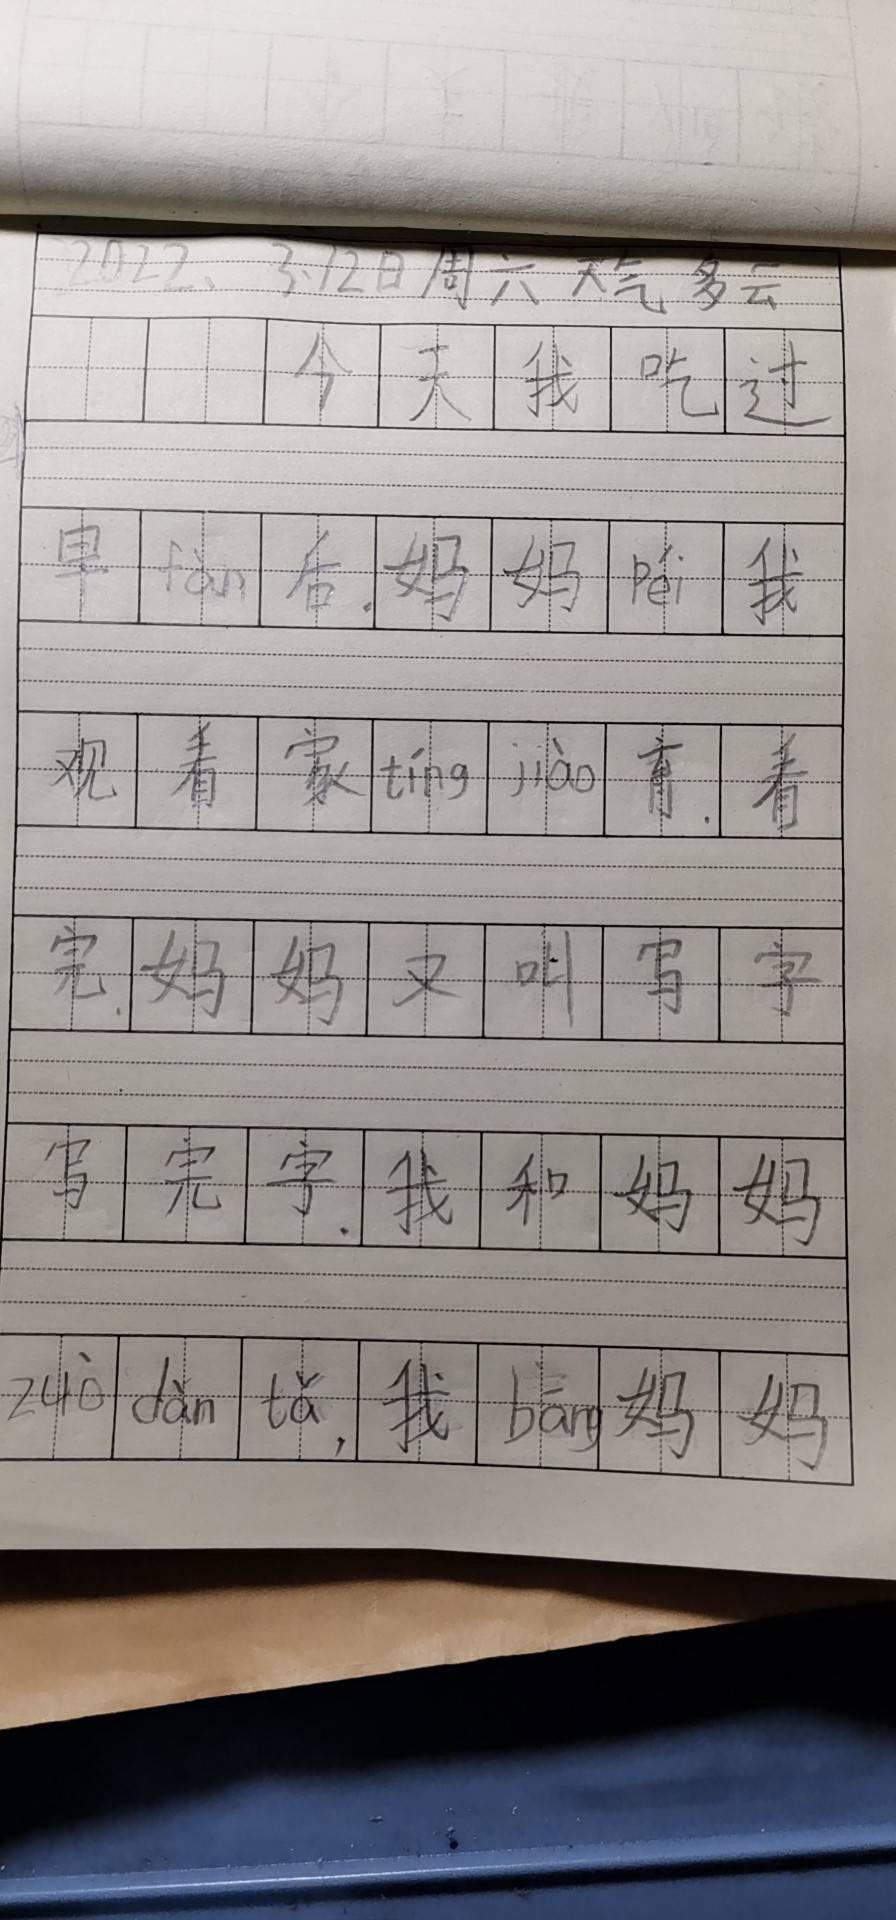 2022、3.12日周六天气多云
今天我吃过
早fàn后.妈妈péi我
观看家tíng jiào育.看
完.妈妈又叫写字
写完字.我和妈妈
zuò dàn tǎ,我bāng妈妈